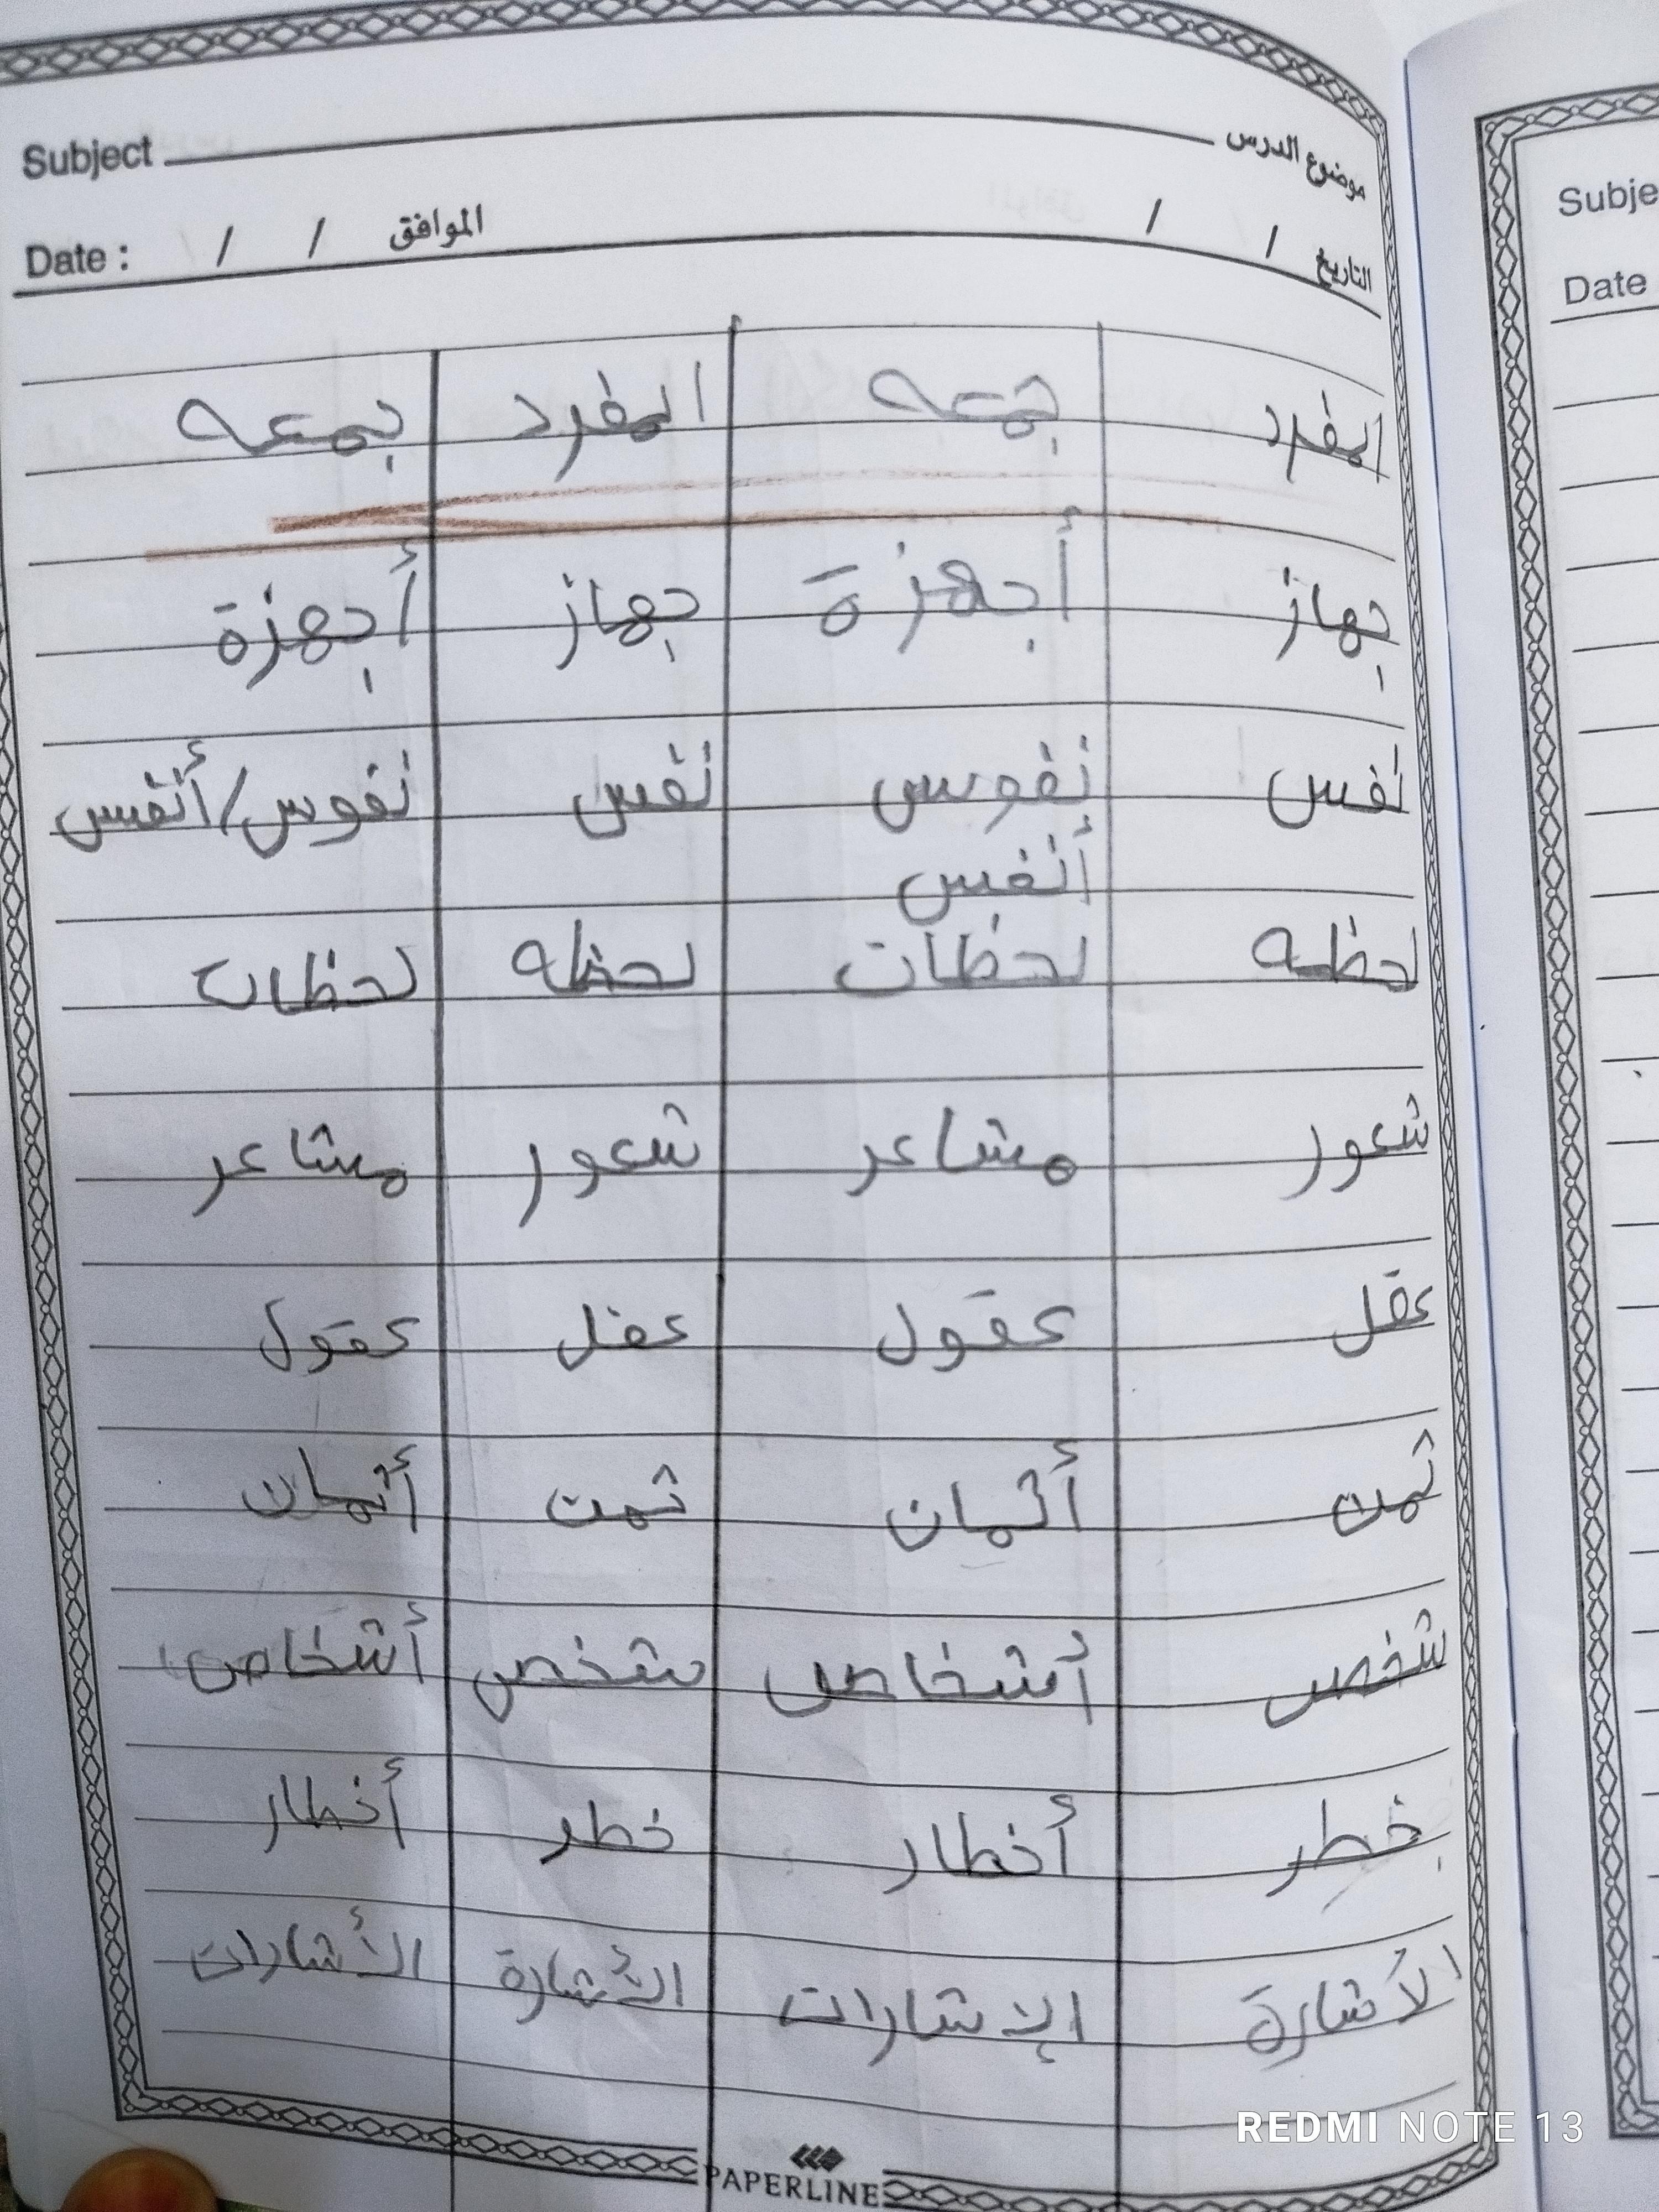 Subject موضوع الدرس
Date : / / الموافق / / التاريخ
المفرد جمعه المفرد جمعه
جهاز أجهزة جهاز أجهزة
نفس نفوس نفس نفوس/أنفس
أنفس
لحظه لحظات لحظه لحظات
شعور مشاعر شعور مشاعر
عقل عقول عقل عقول
ثمن أثمان ثمن أثمان
شخص أشخاص شخص أشخاص
خطر أخطار خطر أخطار
الأشارة الإشارات الأشارة الأشارات
PAPERLINE
Subje
Date
REDMI NOTE 13